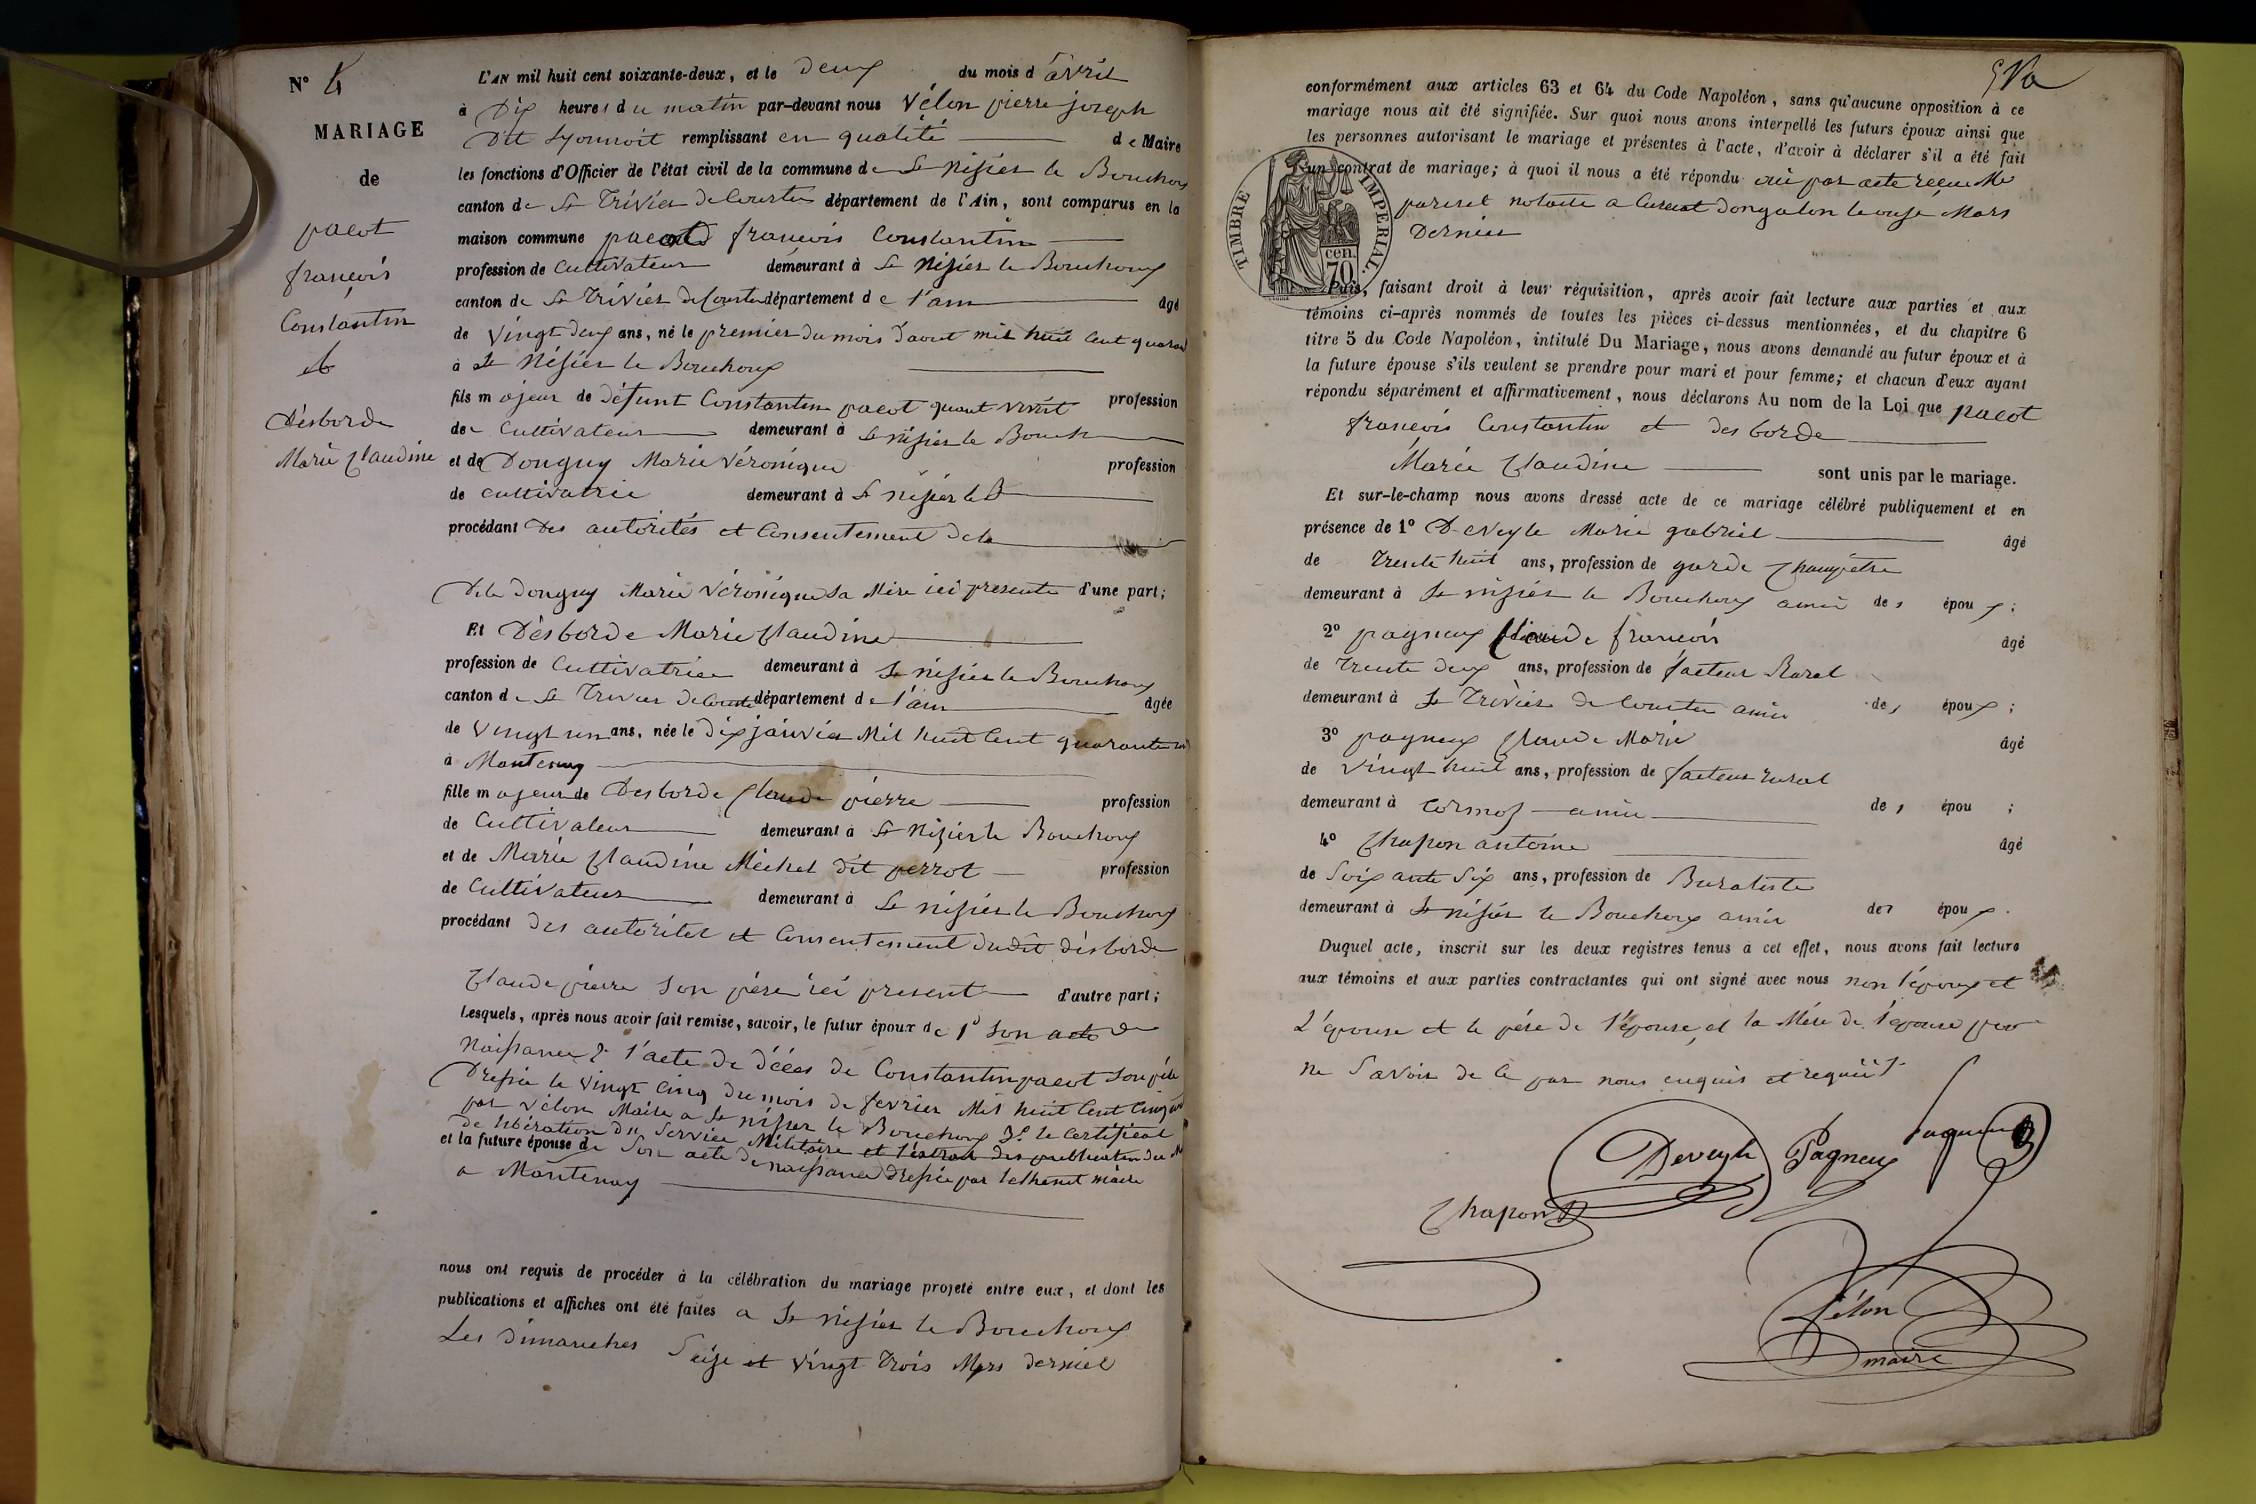 N° 4
MARIAGE
de
pacot
françois
Constantin
et
Désborde
Marie Claudine
L'AN mil huit cent soixante-deux, et le deux du mois d'avril
à Dix heures du matin par-devant nous Vélon pierre joseph
Dit Lyonnoit remplissant en qualité de Maire
les fonctions d'Officier de l'état civil de la commune de St Nisier le Bouchoux
canton de St Trivier de Courtes département de l'Ain, sont comparus en la
maison commune pacot françois Constantin
profession de Cultivateur demeurant à St Nisier le Bouchoux
canton de St Trivier de Courtes département de l'ain âgé
de Vingt deux ans, né le premier du mois d'aout mil huit Cent quarant
à St Nisier le Bouchoux
fils majeur de défunt Constantin pacot quant vivait profession
de Cultivateur demeurant à St nisier le Bouch
et de Donguy Marie Véronique profession
de cultivatrice demeurant à St nisier le B
procédant Des autorités et Consentement de la
Dite Donguy Marie Véronique Sa Mère ici presente d'une part;
Et Désborde Marie Claudine
profession de Cultivatrice demeurant à St Nisier le Bouchoux
canton de St Trivier de Courte département de l'ain âgée
de Vingt un ans, née le Dix janvier Mil huit Cent quarante un
à Mantenay
fille majeur de Desborde Claude pierre profession
de Cultivateur demeurant à St Nizier le Bouchoux
et de Marie Claudine Michel dit perrot profession
de Cultivateur demeurant à St nisier le Bouchoux
procédant des autorités et Consentement dudit désborde
Claude pierre Son père ici present d'autre part;
Lesquels, après nous avoir fait remise, savoir, le futur époux de 1° Son acte de
Naissance 2° l'acte de décés de Constantin pacot Son père
Dressée le vingt Cinq du mois de fevrier Mil huit Cent Cinquant
par Vélon Maire a St nisier le Bouchoux 3° le Certificat
de libération du Service Militaire et l'extrait des publication du
et la future épouse de Son acte de naissance Dressée par maire
a Mantenay
nous ont requis de procéder à la célébration du mariage projeté entre eux, et dont les
publications et affiches ont été faites a St nisier le Bouchoux
Les Dimanches Seize et Vingt Trois Mars dernier
conformément aux articles 63 et 64 du Code Napoléon, sans qu'aucune opposition à ce
mariage nous ait été signifiée. Sur quoi nous avons interpellé les futurs époux ainsi que
les personnes autorisant le mariage et présentes à l'acte, d'avoir à déclarer s'il a été fait
un contrat de mariage; à quoi il nous a été répondu oui par acte reçue Me
notaire a Curciat Dongalon le onze Mars
Dernier
TIMBRE IMPERIAL.
70 cen.
Puis, faisant droit à leur réquisition, après avoir fait lecture aux parties et aux
témoins ci-après nommés de toutes les pièces ci-dessus mentionnées, et du chapitre 6
titre 5 du Code Napoléon, intitulé Du Mariage, nous avons demandé au futur époux et à
la future épouse s'ils veulent se prendre pour mari et pour femme; et chacun d'eux ayant
répondu séparément et affirmativement, nous déclarons Au nom de la Loi que pacot
françois Constantin et des borde
Marie Claudine sont unis par le mariage.
Et sur-le-champ nous avons dressé acte de ce mariage célébré publiquement et en
présence de 1° Deveyle Marie gabriel âgé
de Trente huit ans, profession de garde Champêtre
demeurant à St nisier le Bouchoux amis des époux;
2° pagneux Claude francois âgé
de Trente deux ans, profession de facteur Rural
demeurant à St Trivier de Courtes amis des époux;
3° pagneux Claude Marie âgé
de Vingt huit ans, profession de facteur rural
demeurant à Cormoz amis des épou;
4° Chapon antoine âgé
de Soix ante Six ans, profession de Buraliste
demeurant à St nisier le Bouchoux amis des époux.
Duquel acte, inscrit sur les deux registres tenus à cet effet, nous avons fait lecture
aux témoins et aux parties contractantes qui ont signé avec nous non l'époux et
L'épouse et le père de l'épouse, et la Mère de l'épouse pour
ne Savoir de ce par nous enquis et requis
Deveyle Pagneux Pagneux
Chapon
Vélon
maire